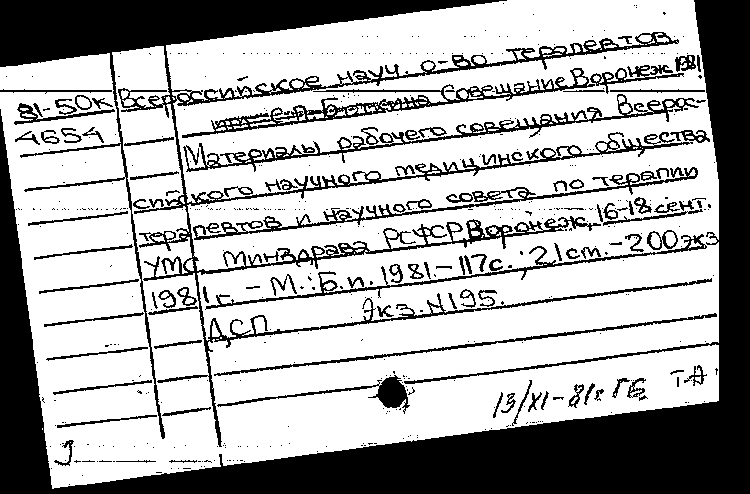 81-50к Всероссийское науч. о-во терапевтов.
4654 им. С.П. Боткина Совещание Воронеж 1981
Материалы рабочего совещания Всерос-
сийского научного медицинского общества
терапевтов и научного совета по терапии
УМС. Минздрава РСФСР, Воронеж, 16-18 сент.
1981г. - М.: Б.и., 1981. - 117с.; 21 cm. - 200 экз
ДСП. Экз. N195.
13/XI-81г. ГБ Т-А